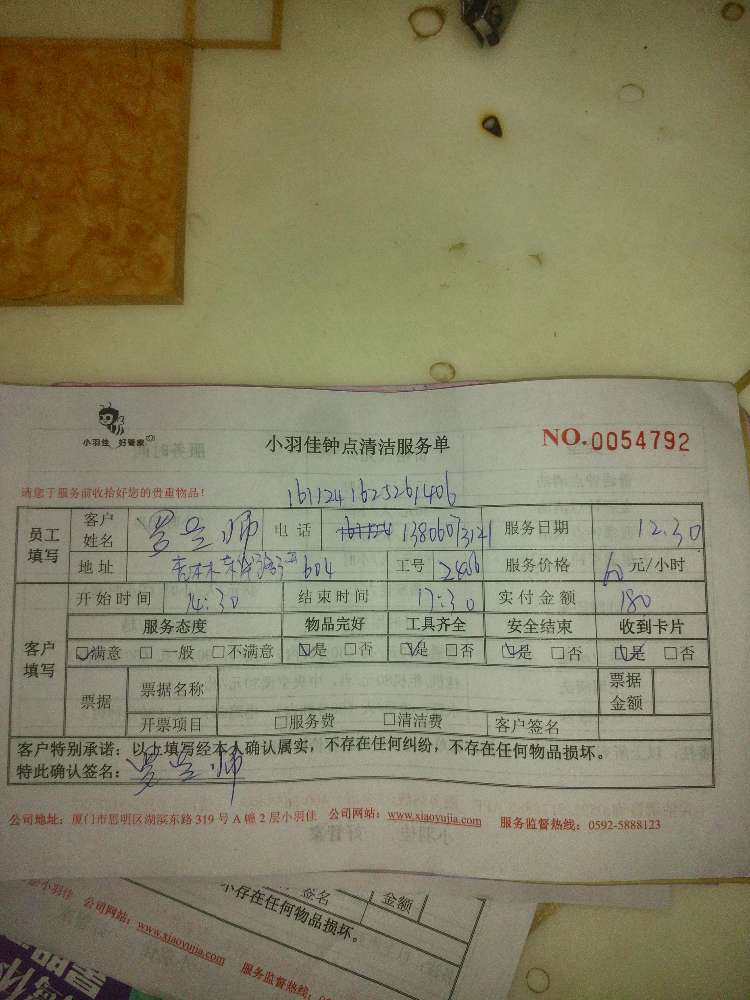 小羽佳 好管家
小羽佳钟点清洁服务单
NO.0054792
请您于服务前收拾好您的贵重物品！
161124 1625261406
员工填写 客户姓名 电话 13806073121 服务日期 12.30
地址 604 工号 服务价格 60 元/小时
客户填写 开始时间 14:30 结束时间 17:30 实付金额 180
服务态度 物品完好 工具齐全 安全结束 收到卡片
☑满意 □一般 □不满意 ☑是 □否 ☑是 □否 ☑是 □否 ☑是 □否
票据 票据名称 票据金额
开票项目 □服务费 □清洁费 客户签名
客户特别承诺：以上填写经本人确认属实，不存在任何纠纷，不存在任何物品损坏。
特此确认签名：
公司地址：厦门市思明区湖滨东路 319 号 A 幢 2 层小羽佳 公司网站：www.xiaoyujia.com 服务监督热线：0592-5888123
签名 金额
不存在任何物品损坏。
小羽佳 公司网站：www.xiaoyujia.com 服务监督热线：